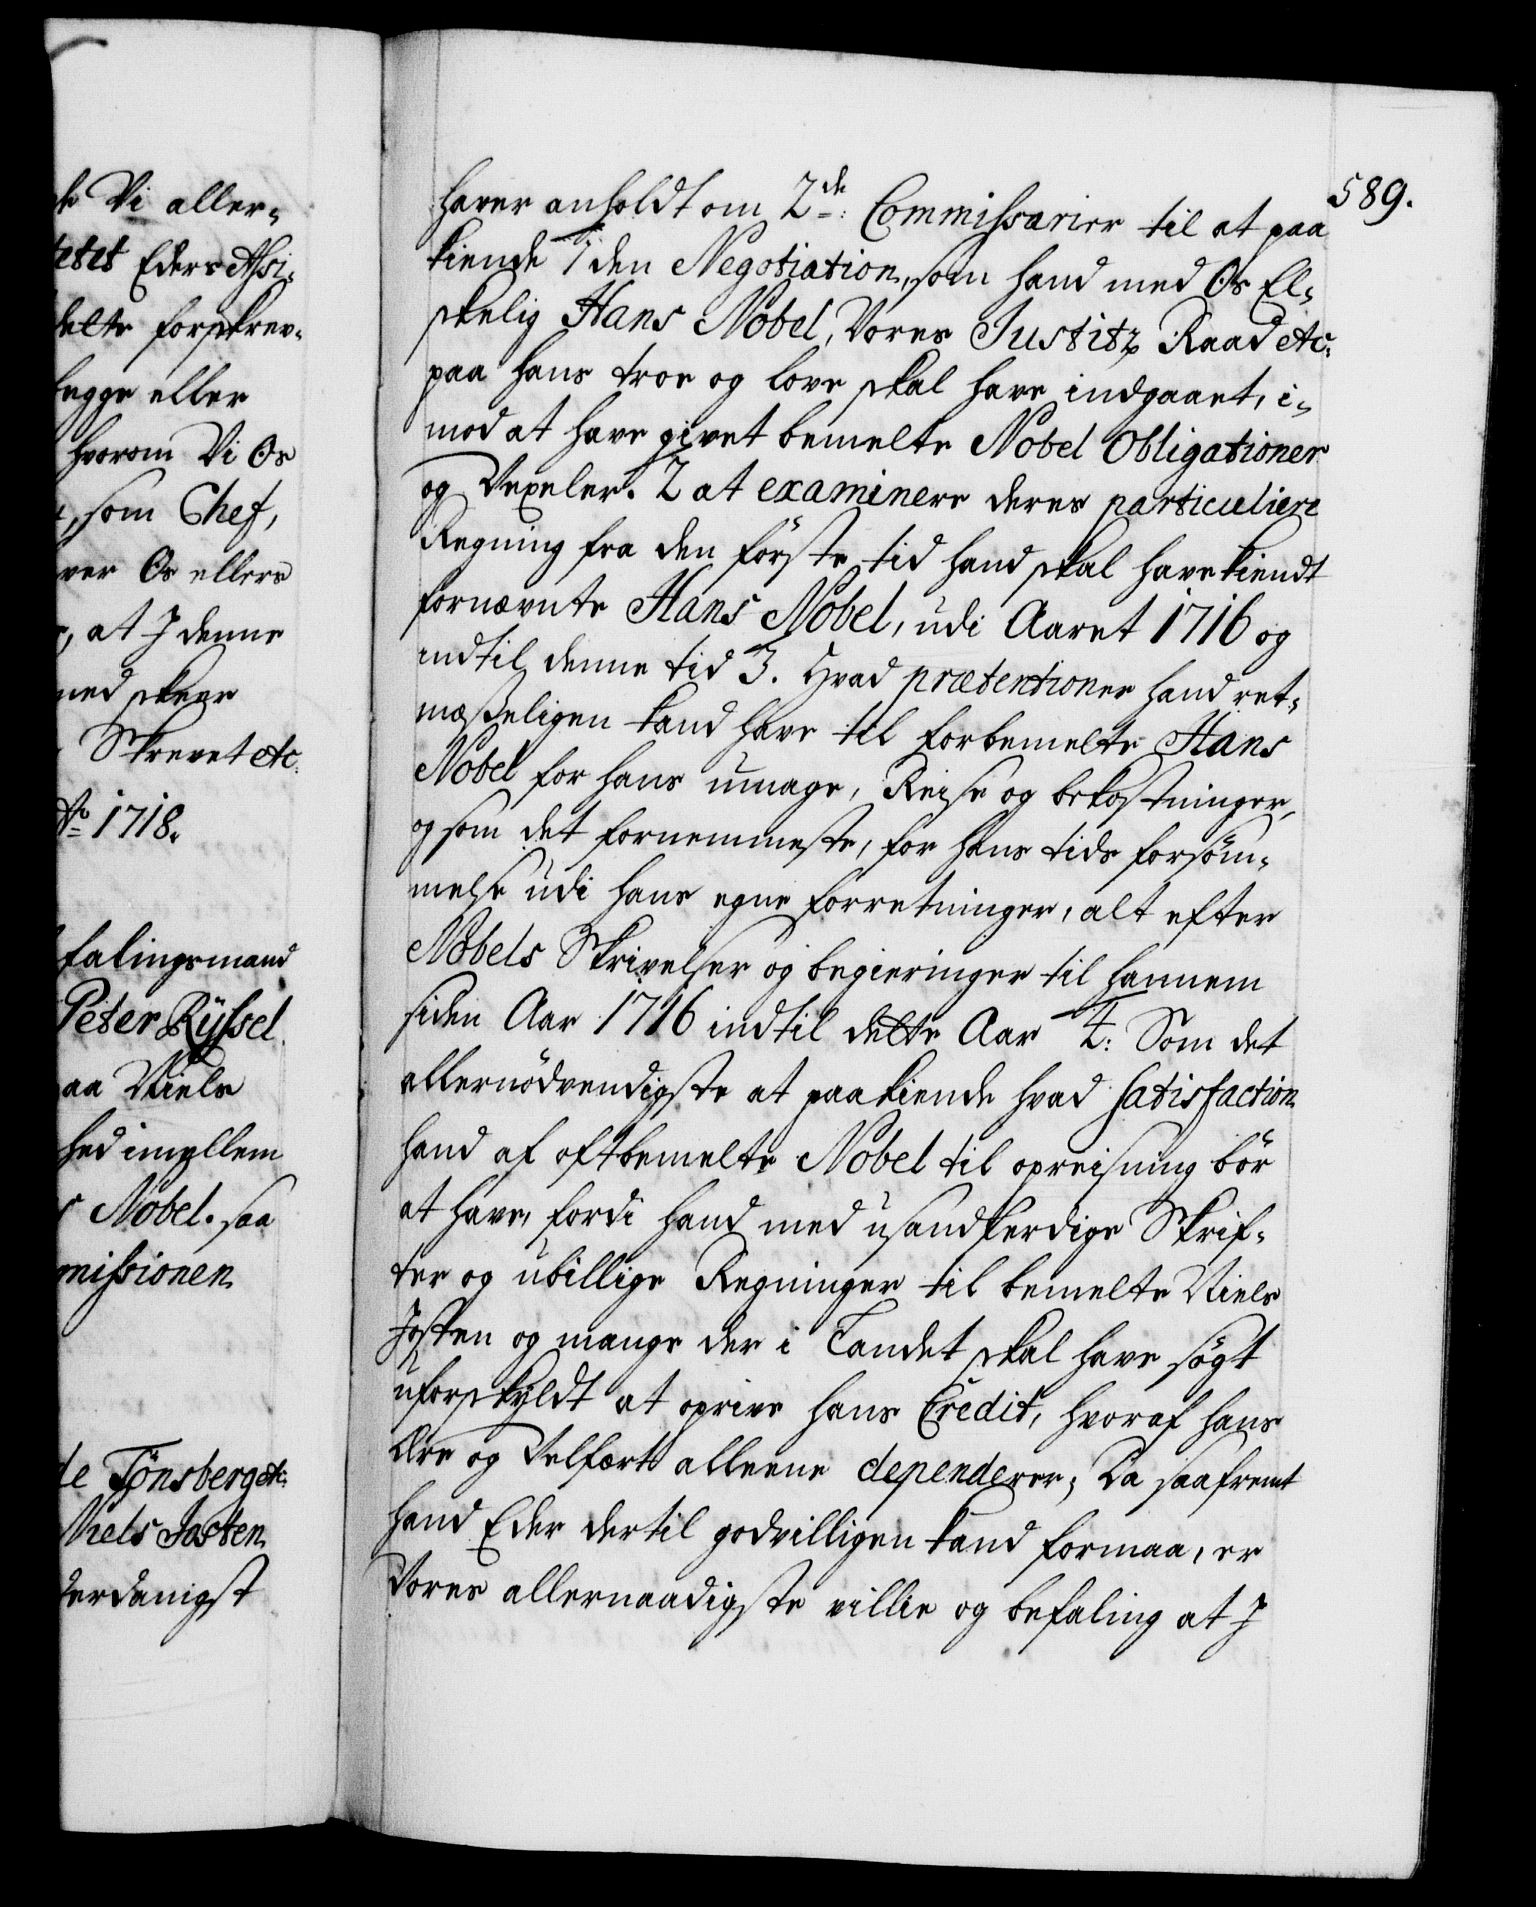 te Vi aller-
tetet Eders Assi-
delte forskrev-
legge eller
hvorom Vi Os
, som Chef,
ver Os ellers
, at I denne
ned skeer
Skrevet etc.
Ao 1718.
falingsmand
Peter Rÿssel
aa Niels
hed imellem
s Nobel. saa
missionen
de Tönsberg etc.
Niels Josten
derdanigst
589.
haver anholdt om 2de: Commissarier til at paa
kiende 1 den Negotiation, som hand med Os El-
skelig Hans Nobel, Vores Justitz Raad etc:
paa hans troe og love skal have indgaaet, i-
mod at have givet bemelte Nobel Obligationer
og Vexeler. 2 at examinere deres particuliere
Regning fra den förste tid hand skal have kiendt
fornævnte Hans Nobel, udi Aaret 1716 og
indtil denne tid 3. Hvad prætentioner hand ret-
mæsseligen kand have til forbemelte Hans
Nobel for hans umage, Reise og bekostninger,
og som det fornemmeste, for hans tids forsöm-
melse udi hans egne forretninger, alt efter
Nobels Skrivelser og begieringer til hannem
siden Aar 1716 indtil dette Aar 4: Som det
allernödvendigste at paakiende hvad Satisfaction
hand af oftbemelte Nobel til opreisning bör
at have, fordi hand med usandferdige Skrif-
ter og ubillige Regninger til bemelte Niels
Josten og mange der i Landet skal have sögt
uforskyldt at oprive hans Credit, hvoraf hans
Ære og Velfært alleene dependerer; Da saafremt
hand Eder dertil godvilligen kand formaa, er
Vores allernaadigste villie og befaling at I